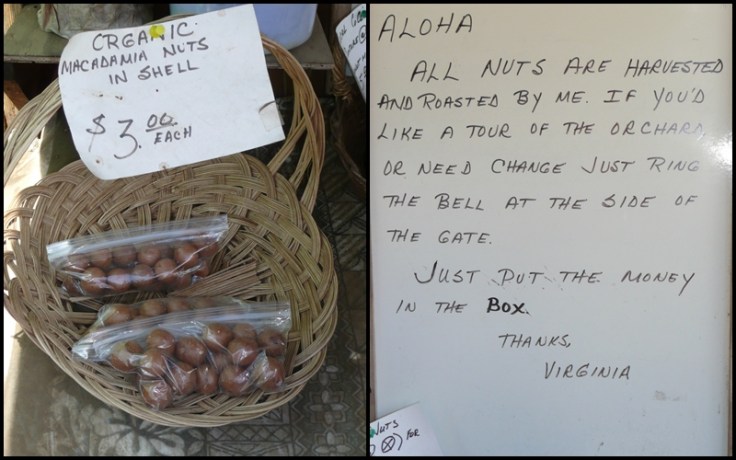 CRGANIC
MACADAMIA NUTS
IN SHELL
$3.00
EACH
ALOHA
ALL NUTS ARE HARVESTED
AND ROASTED BY ME. IF YOU'D
LIKE A TOUR OF THE ORCHARD,
OR NEED CHANGE JUST RING
THE BELL AT THE SIDE OF
THE GATE.
JUST PUT THE MONEY
IN THE BOX.
THANKS,
VIRGINIA
NUTS
FOR